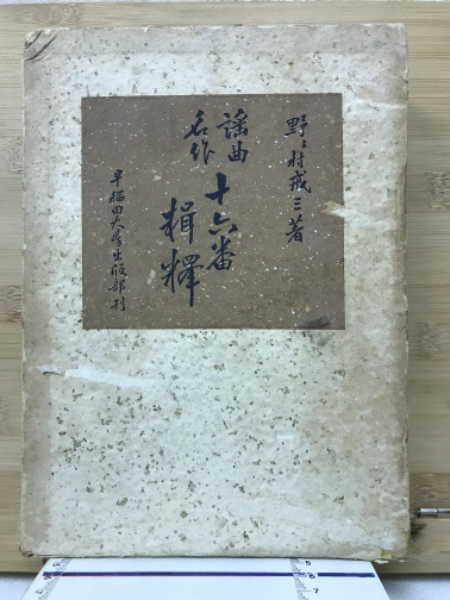 野々村戒三著
謡曲
名作
十六番
輯釋
早稲田大学出版部刊
5
6
7